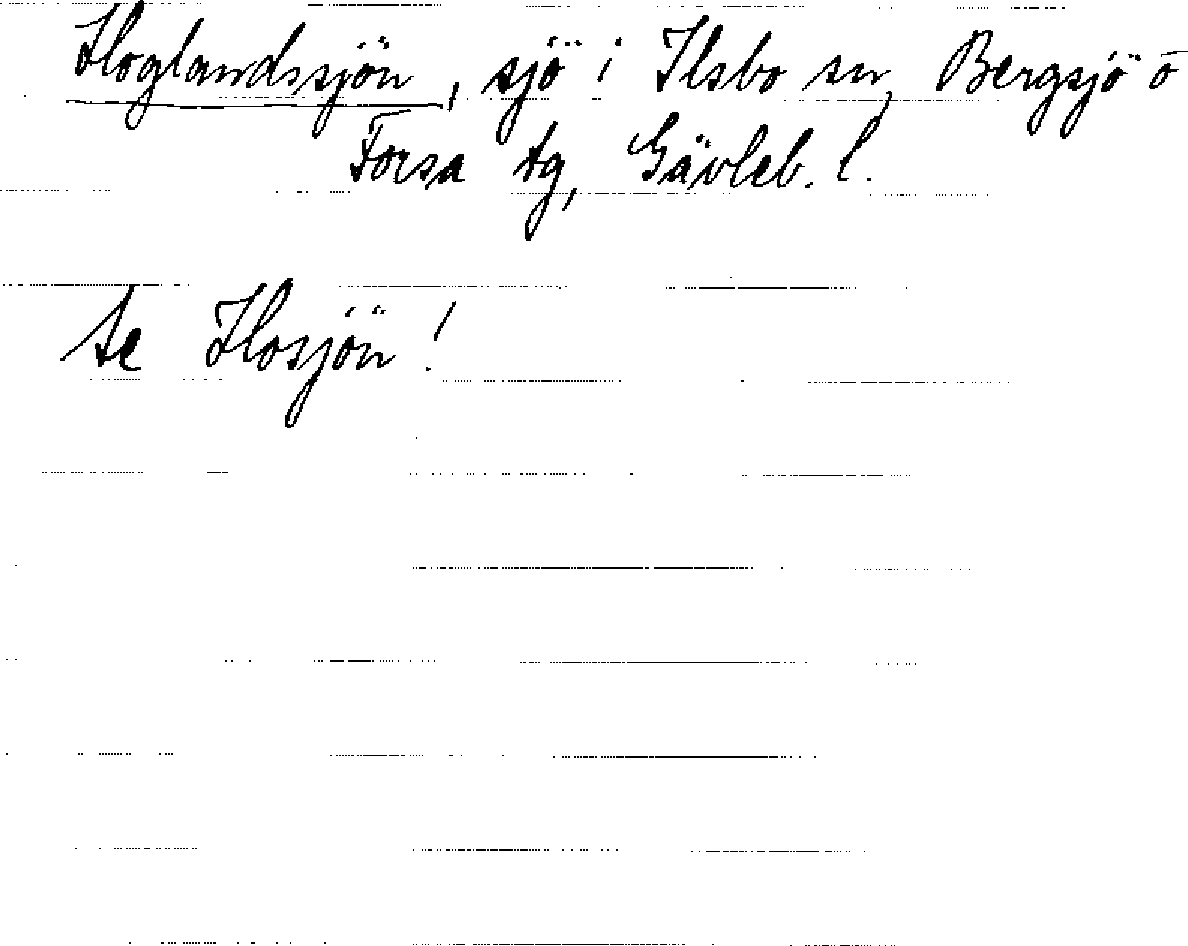 Hoglandssjön, sjö i Ilsbo sn, Bergsjö o
Forsa tg, Gävleb. l.
Se Hosjön!